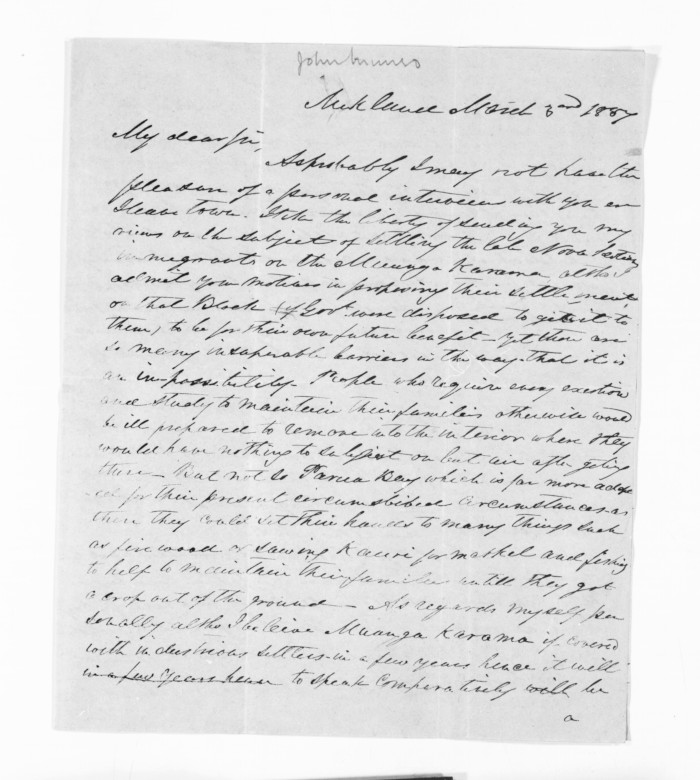 John Munro
Auckland March 3rd 1857
My dear Sir,
As probably I may not have the
pleasure of a personal interview with you ere
I leave town. I take the liberty of sending you my
views on the subject of settling the late Nova Scotian
immigrants on the Muanga Karama altho' I
admit your motives in proposing their settlement
on that Block (if Govt. were disposed to give it to
them,) to be for their own future benefit - yet there are
so many insuperable barriers in the way that it is
an impossibility - People who require every exertion
and study to maintain their families otherwise would
be ill prepared to remove into the interior where they
would have nothing to subsist on but air after going
there - But not so Parua Bay which is far more adapt
ed for their present circumstances as
there they could set their hands to many things such
as fire wood or sawing Kauri for market and fishing
to help to maintain their families untill they got
a crop out of the ground - As regards myself per
sonally altho I beleive Muanga Karama if covered
with industrious settlers in a few years hence it will
in a few years hence to speak comperatively will be
a